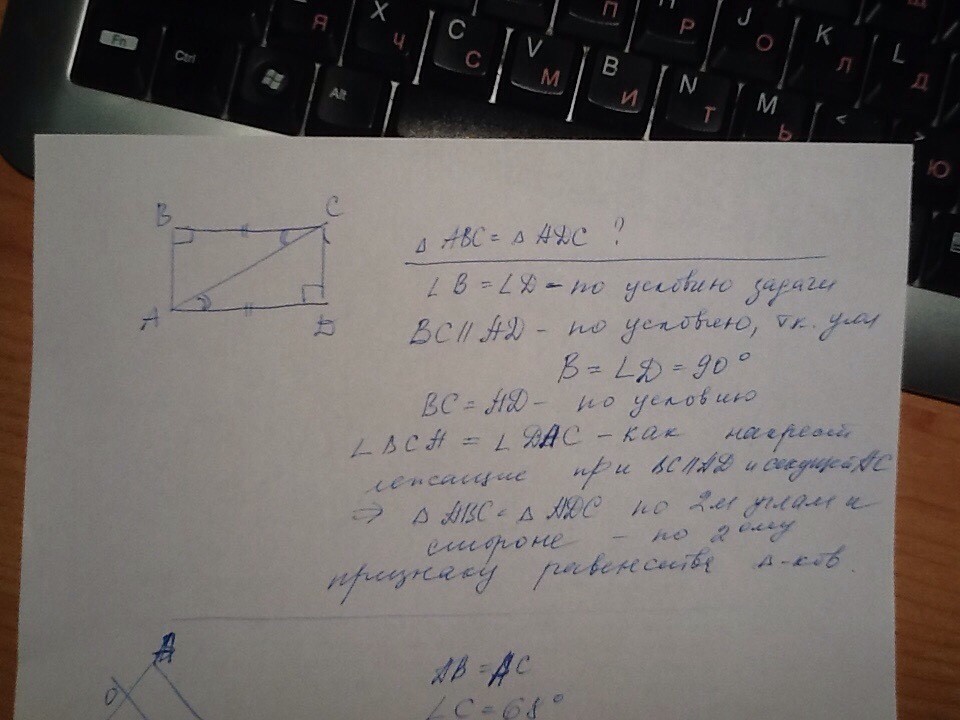 Fn
Ctrl
Alt
Я
X Ч
C С
V М
B И
П
N Т
Р
M Ь
J О
K Л
L Д
<
Ю
B C
A D
Δ ABC = Δ ADC ?
∠B = ∠D - по условию задачи
BC || AD - по условию, т.к. угол
B = ∠D = 90°
BC = AD - по условию
∠BCA = ∠DAC - как накрест
лежащие при BC || AD и секущей AC
⇒ Δ ABC = Δ ADC по 2м углам и
стороне - по 2ому
признаку равенства Δ-ков.
A
O
AB = AC
∠C = 68°